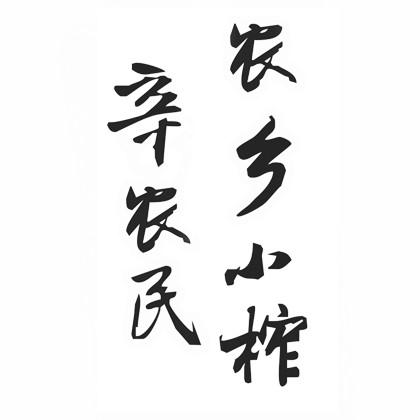 农乡小榨
辛农民